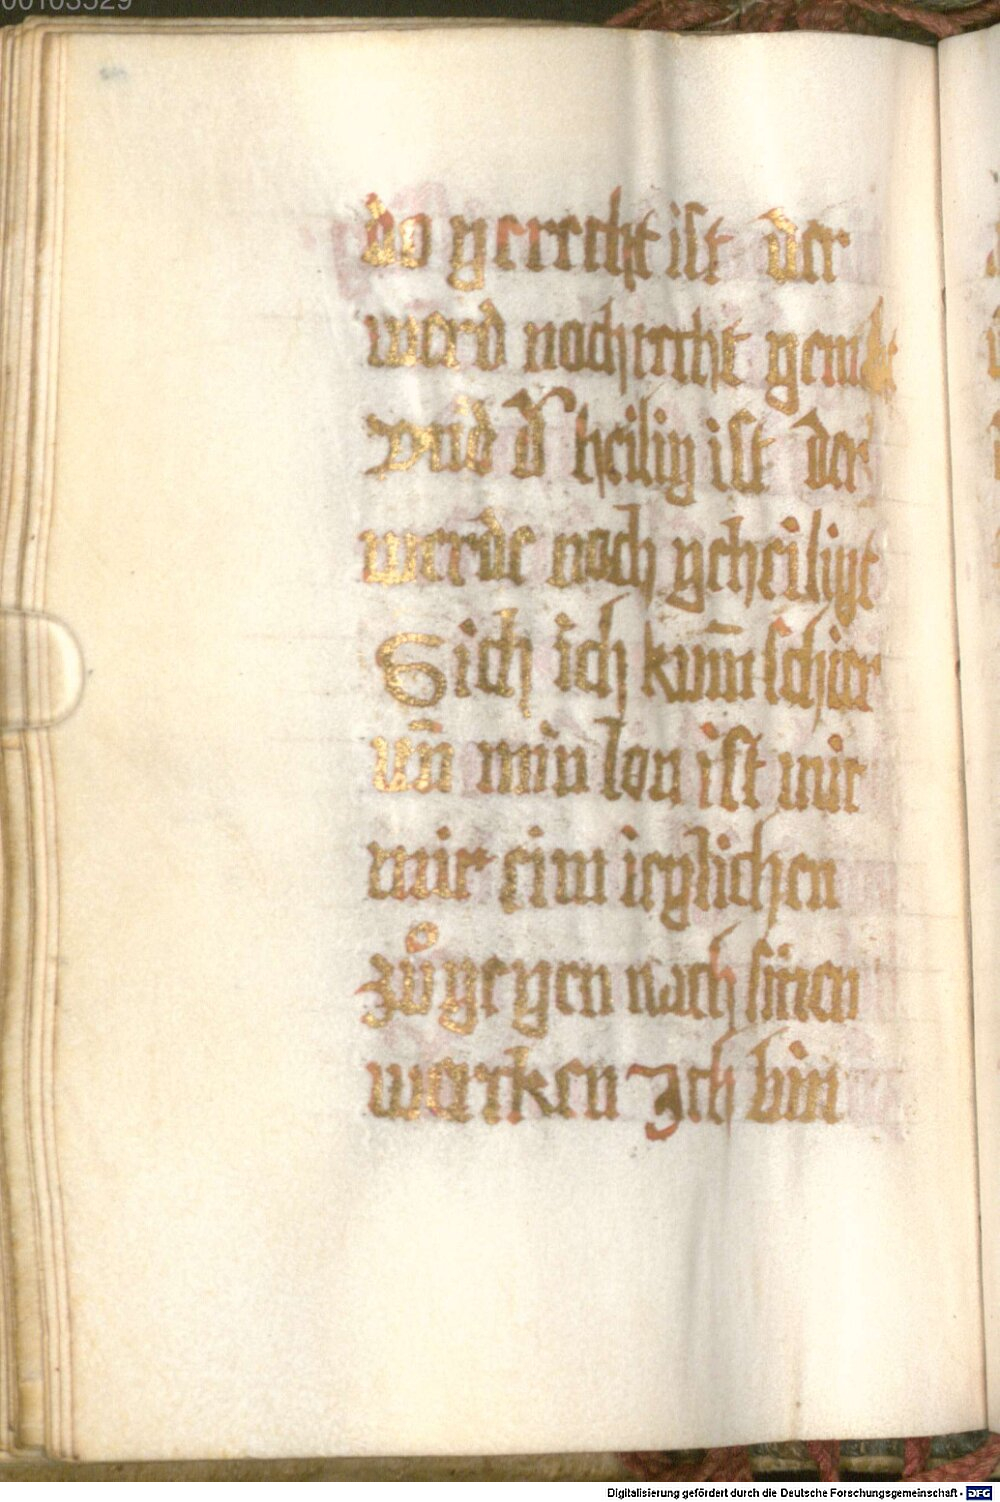 00103529
do gerecht ist der
werd noch recht gemacht
vnd dˢ heilig ist der
werde noch geheiligt
Sich ich kum̄ schier
un̄ min lon ist mir
mir eim ieglichen
zůgegen nach sinen
werken Ich bin
Digitalisierung gefördert durch die Deutsche Forschungsgemeinschaft - DFG